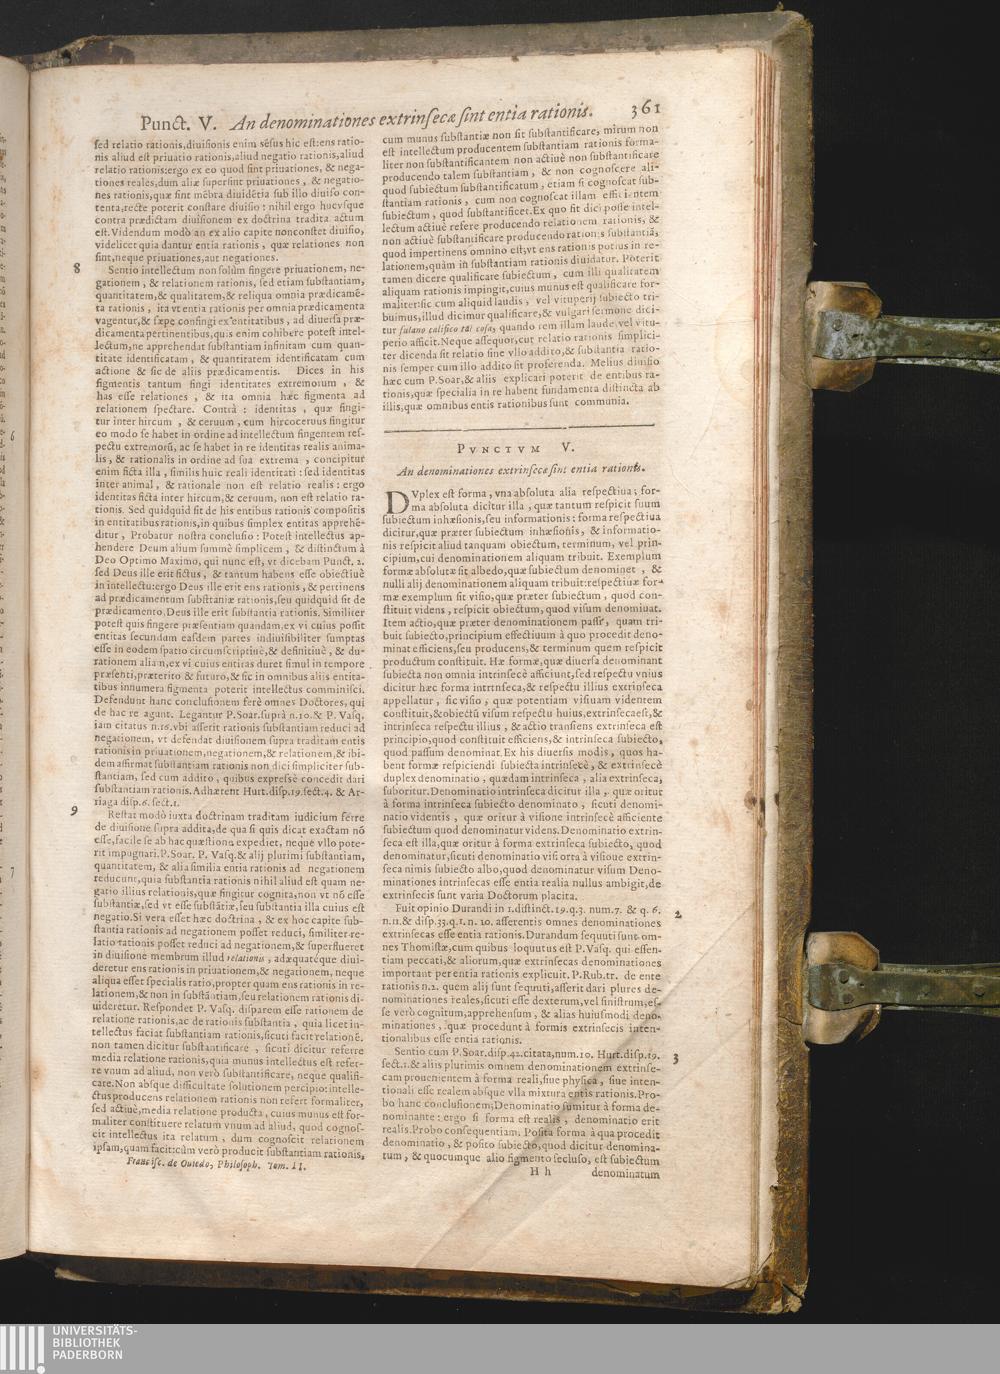 Punct. V. An denominationes extrinsecæ sint entia rationis. 361
sed relatio rationis,diuisionis enim sēsus hic est:ens ratio-
nis aliud est priuatio rationis,aliud negatio rationis,aliud
relatio rationis:ergo ex eo quod sint priuationes, & nega-
tiones reales,dum aliæ supersint priuationes , & negatio-
nes rationis,quæ sint mēbra diuidētia sub illo diuiso con-
tenta,recte poterit constare diuisio : nihil ergo hucvsque
contra prædictam diuisionem ex doctrina tradita actum
est.Videndum modò an ex alio capite nonconstet diuisio,
videlicet quia dantur entia rationis , quæ relationes non
sint,neque priuationes,aut negationes.
8 Sentio intellectum non solùm fingere priuationem, ne-
gationem , & relationem rationis, sed etiam substantiam,
quantitatem,& qualitatem,& reliqua omnia prædicamē-
ta rationis , ita vt entia rationis per omnia prædicamenta
vagentur,& sæpe confingi ex entitatibus , ad diuersa præ-
dicamenta pertinentibus,quis enim cohibere potest intel-
lectum,ne apprehendat substantiam infinitam cum quan-
titate identificatam , & quantitatem identificatam cum
actione & sic de aliis prædicamentis. Dices in his
figmentis tantum fingi identitates extremorum , &
has esse relationes , & ita omnia hæc figmenta ad
relationem spectare. Contrà : identitas , quæ fingi-
tur inter hircum , & ceruum , cum hircoceruus fingitur
eo modo se habet in ordine ad intellectum fingentem res-
pectu extremorū, ac se habet in re identitas realis anima-
lis , & rationalis in ordine ad sua extrema , concipitur
enim ficta illa , similis huic reali identitati : sed identitas
inter animal , & rationale non est relatio realis : ergo
identitas ficta inter hircum,& ceruum, non est relatio ra-
tionis. Sed quidquid sit de his entibus rationis compositis
in entitatibus rationis,in quibus simplex entitas apprehē-
ditur , Probatur nostra conclusio : Potest intellectus ap-
hendere Deum alium summè simplicem , & distinctum à
Deo Optimo Maximo, qui nunc est, vt dicebam Punct. 2.
sed Deus ille erit fictus , & tantum habens esse obiectiuè
in intellectu:ergo Deus ille erit ens rationis , & pertinens
ad prædicamentum substantiæ rationis,seu quidquid sit de
prædicamento,Deus ille erit substantia rationis. Similiter
potest quis fingere præsentiam quandam,ex vi cuius possit
entitas secundum easdem partes indiuisibiliter sumptas
esse in eodem spatio circumscriptiuè,& definitiuè , & du-
rationem aliam,ex vi cuius entitas duret simul in tempore
præsenti,præterito & futuro,& sic in omnibus aliis entita-
tibus innumera figmenta poterit intellectus comminisci.
Defendunt hanc conclusionem ferè omnes Doctores, qui
de hac re agunt. Legantur P.Soar.suprà n.10.& P. Vasq.
iam citatus n.16.vbi asserit rationis substantiam reduci ad
negationem, vt defendat diuisionem supra traditam entis
rationis in priuationem,negationem,& relationem,& ibi-
dem affirmat substantiam rationis non dici simpliciter sub-
stantiam, sed cum addito , quibus expressè concedit dari
substantiam rationis.Adhærent Hurt.disp.19.sect.4. & Ar-
riaga disp.6. sect.1.
9 Restat modò iuxta doctrinam traditam iudicium ferre
de diuisione supra addita,de qua si quis dicat exactam nō
esse,facile se ab hac quæstione expediet, neque vllo pote-
rit impugnari.P.Soar. P. Vasq.& alij plurimi substantiam,
quantitatem, & alia similia entia rationis ad negationem
reducunt,quia substantia rationis nihil aliud est quam ne-
gatio illius relationis,quæ fingitur cognita,non vt nō esse
substantiæ,sed vt esse substātiæ,seu substantia illa cuius est
negatio.Si vera esset hæc doctrina , & ex hoc capite sub-
stantia rationis ad negationem posset reduci, similiter re-
latio rationis posset reduci ad negationem,& superflueret
in diuisione membrum illud relationis , adæquatéque diui-
deretur ens rationis in priuationem,& negationem, neque
aliqua esset specialis ratio,propter quam ens rationis in re-
lationem,& non in substātiam,seu relationem rationis di-
uideretur. Respondet P. Vasq. disparem esse rationem de
relatione rationis,ac de rationis substantia , quia licet in-
tellectus faciat substantiam rationis,sicuti facit relationē.
non tamen dicitur substantificare , sicuti dicitur referre
media relatione rationis,quia munus intellectus est refer-
re vnum ad aliud, non verò substantificare, neque qualifi-
care.Non absque difficultate solutionem percipio:intelle-
ctus producens relationem rationis non refert formaliter,
sed actiuè,media relatione producta , cuius munus est for-
maliter constituere relatum vnum ad aliud, quod cognos-
cit intellectus ita relatum , dum cognoscit relationem
ipsam,quam facit:cùm verò producit substantiam rationis,
Francisc. de Ouiedo, Philosoph. Tom. II.
cum munus substantiæ non sit substantificare, mirum non
est intellectum producentem substantiam rationis forma-
liter non substantificantem non actiuè non substantificare
producendo talem substantiam , & non cognoscere ali-
quod subiectum substantificatum , etiam si cognoscat sub-
stantiam rationis , cum non cognoscat illam efficientem
subiectum , quod substantificet.Ex quo fit dici posse intel-
lectum actiuè refere producendo relationem rationis, &
non actiuè substantificare producendo rationis substantiā,
quod impertinens omnino est,vt ens rationis potius in re-
lationem,quàm in substantiam rationis diuidatur. Poterit
tamen dicere qualificare subiectum , cum illi qualitatem
aliquam rationis impingit,cuius munus est qualificare for-
maliter:sic cum aliquid laudis , vel vituperij subiecto tri-
buimus,illud dicimur qualificare,& vulgari sermone dici-
tur fulano califico tal cosa, quando rem illam laude,vel vitu-
perio afficit.Neque assequor,cur relatio rationis simplici-
ter dicenda sit relatio sine vllo addito,& substantia ratio-
nis semper cum illo addito sit proferenda. Melius diuisio
hæc cum P.Soar,& aliis explicari poterit de entibus ra-
tionis,quæ specialia in re habent fundamenta distincta ab
illis,quæ omnibus entis rationibus sunt communia.
PVNCTVM V.
An denominationes extrinsecæ sint entia rationis.
DVplex est forma , vna absoluta alia respectiua ; for-
ma absoluta dicitur illa , quæ tantum respicit suum
subiectum inhæsionis,seu informationis : forma respectiua
dicitur,quæ præter subiectum inhæsionis, & informatio-
nis respicit aliud tanquam obiectum, terminum, vel prin-
cipium,cui denominationem aliquam tribuit. Exemplum
formæ absolutæ sit albedo,quæ subiectum denominet , &
nulli alij denominationem aliquam tribuit:respectiuæ for-
mæ exemplum sit visio,quæ præter subiectum , quod con-
stituit videns , respicit obiectum, quod visum denominat.
Item actio,quæ præter denominationem passi, quam tri-
buit subiecto,principium effectiuum à quo procedit deno-
minat efficiens,seu producens,& terminum quem respicit
productum constituit. Hæ formæ,quæ diuersa denominant
subiecta non omnia intrinsecè afficiunt,sed respectu vnius
dicitur hæc forma intrinseca,& respectu illius extrinseca
appellatur , sic visio , quæ potentiam visiuam videntem
constituit,&obiectū visum respectu huius,extrinseca est,&
intrinseca respectu illius , & actio transiens extrinseca est
principio,quod constituit efficiens,& intrinseca subiecto,
quod passum denominat.Ex his diuersis modis , quos ha-
bent formæ respiciendi subiecta intrinsecè , & extrinsecè
duplex denominatio , quædam intrinseca , alia extrinseca,
suboritur.Denominatio intrinseca dicitur illa , quæ oritur
à forma intrinseca subiecto denominato , sicuti denomi-
natio videntis , quæ oritur à visione intrinsecè afficiente
subiectum quod denominatur videns.Denominatio extrin-
seca est illa,quæ oritur à forma extrinseca subiecto, quod
denominatur,sicuti denominatio visi orta à visione extrin-
seca nimis subiecto albo,quod denominatur visum Deno-
minationes intrinsecas esse entia realia nullus ambigit,de
extrinsecis sunt varia Doctorum placita.
2 Fuit opinio Durandi in 1.distinct.19.q.3. num.7. & q. 6.
n.11.& disp.33.q.1.n. 10. asserentis omnes denominationes
extrinsecas esse entia rationis.Durandum sequuti sunt om-
nes Thomistæ,cum quibus loquutus est P.Vasq. qui essen-
tiam peccati,& aliorum,quæ extrinsecas denominationes
important per entia rationis explicuit. P.Rub.tr. de ente
rationis n.2. quem alij sunt sequuti,asserit dari plures de-
nominationes reales,sicuti esse dexterum,vel sinistrum,es-
se verò cognitum,apprehensum , & alias huiusmodi deno-
minationes , quæ procedunt à formis extrinsecis inten-
tionalibus esse entia rationis.
3 Sentio cum P.Soar.disp.41.citata,num.10. Hurt.disp.19.
sect.1.& aliis plurimis omnem denominationem extrinse-
cam prouenientem à forma reali,siue physica , siue inten-
tionali esse realem absque vlla mixtura entis rationis.Pro-
bo hanc conclusionem;Denominatio sumitur à forma de-
nominante : ergo si forma est realis , denominatio erit
realis.Probo consequentiam. Posita forma à qua procedit
denominatio , & posito subiecto,quod dicitur denomina-
tum , & quocumque alio figmento secluso, est subiectum
H h denominatum
UNIVERSITÄTS-
BIBLIOTHEK
PADERBORN